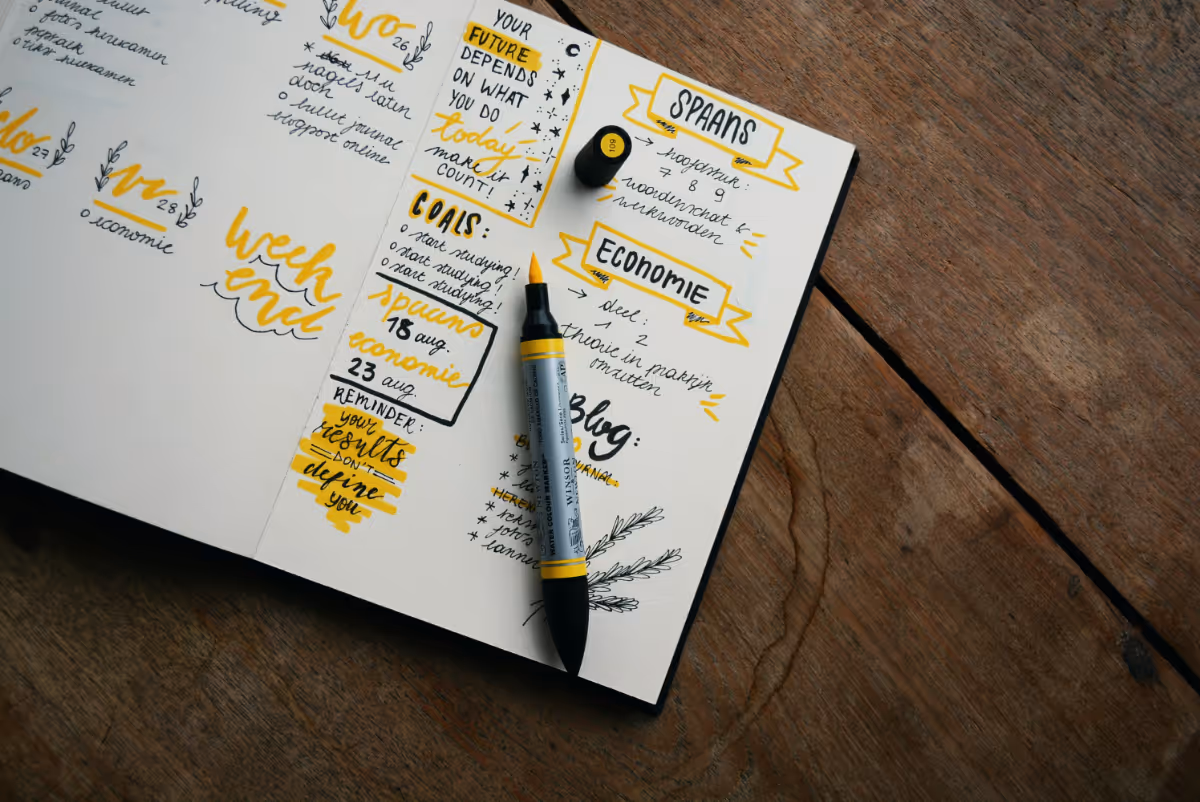 o foto's herexamen
o tiks herexamen
wo
26
* 11u
nagels laten
doen
o bullet journal
blogpost online
do
27
vr
28
o economie
week
end
YOUR
FUTURE
DEPENDS
ON WHAT
YOU DO
today
make it
COUNT!
GOALS:
o start studying!
o start studying!
o start studying!
spaans
18 aug.
economie
23 aug.
REMINDER:
your
results
DON'T
define
you
109
SPAANS
→ hoofdstuk:
7 8 9
woordenschat &
werkwoorden
ECONOMIE
→ deel:
1 2
theorie in praktijk
omzetten
Blog:
WATER COLOUR MARKER
WINSOR